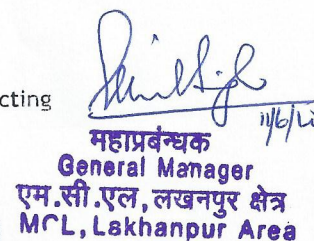 cting
11/6/
महाप्रबन्धक
General Manager
एम.सी.एल, लखनपुर क्षेत्र
MCL, Lakhanpur Area